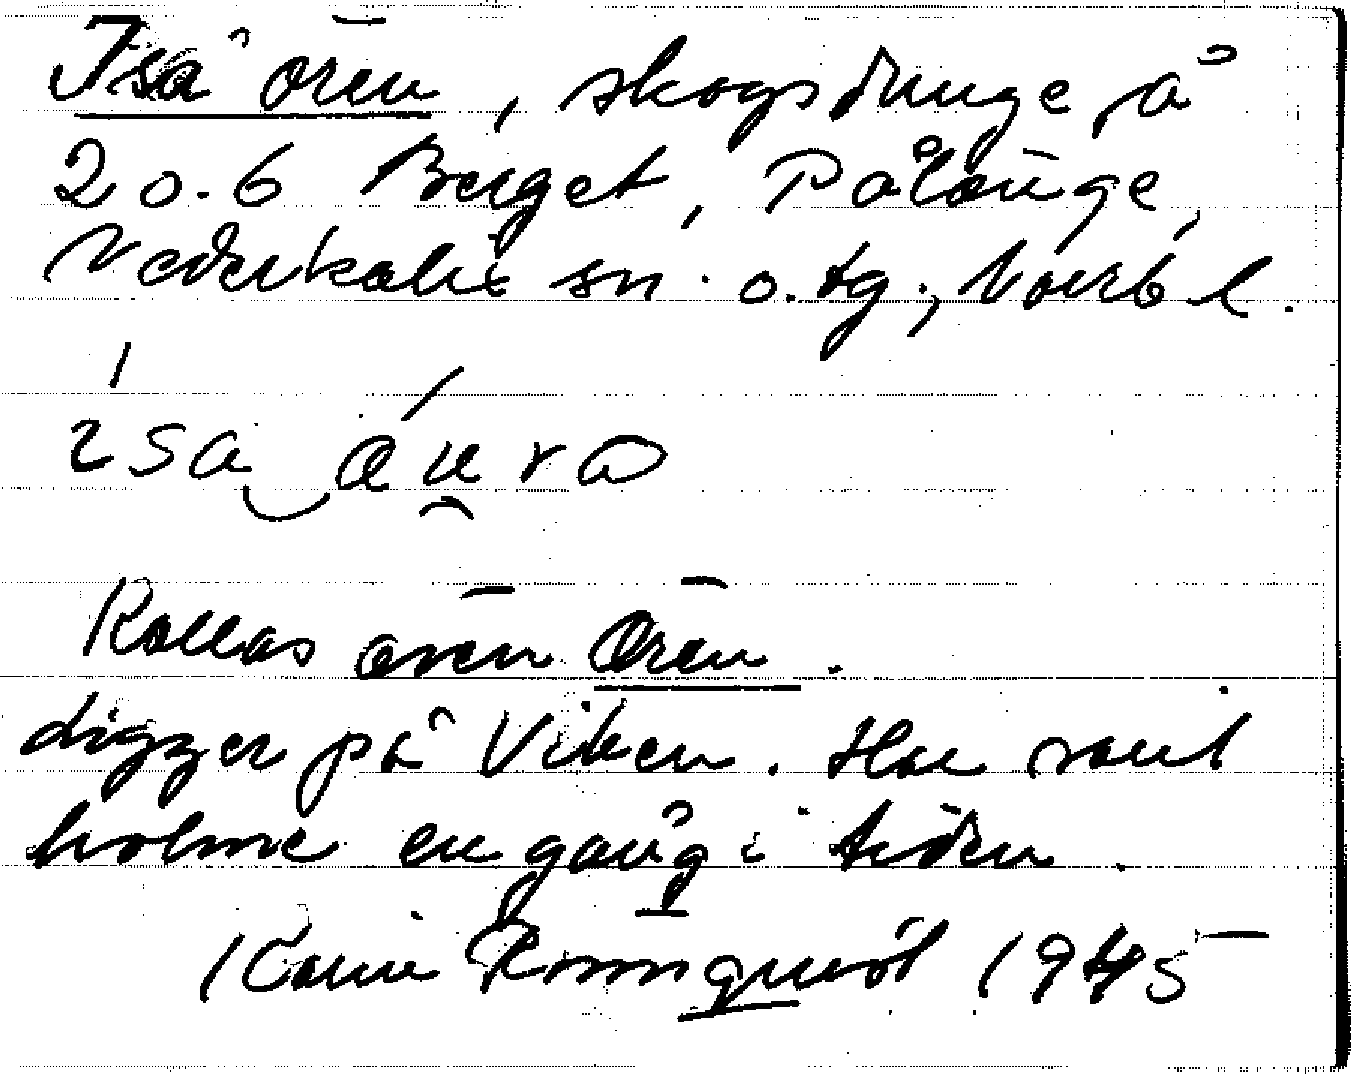 Isa ören, skogsdunge på
20.6 Berget, Pålänge,
Nederkalix sn. o. tg., Norrb l.
ɩsa_áu̯ra
Kallas även Ören.
Ligger på Viken. Har varit
holme en gång i tiden.
Karin Rönnquist 1945